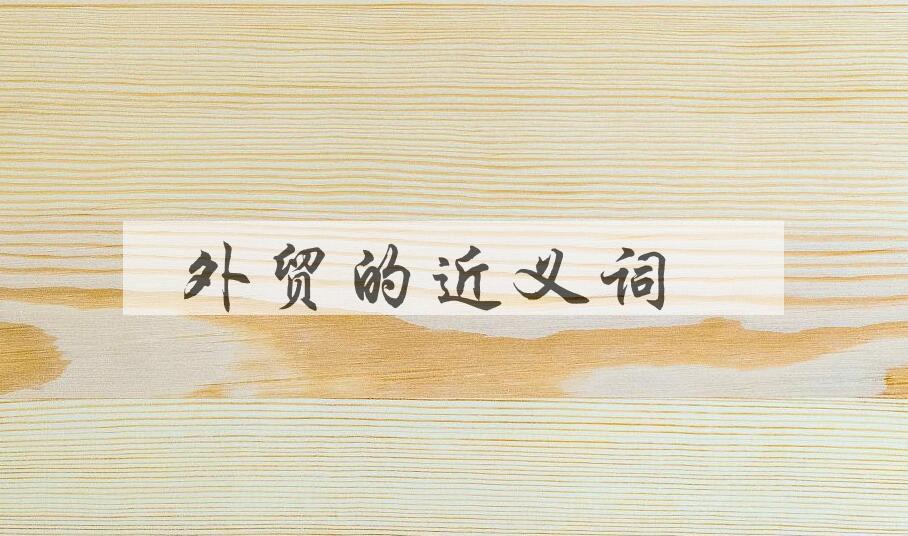 外贸的近义词